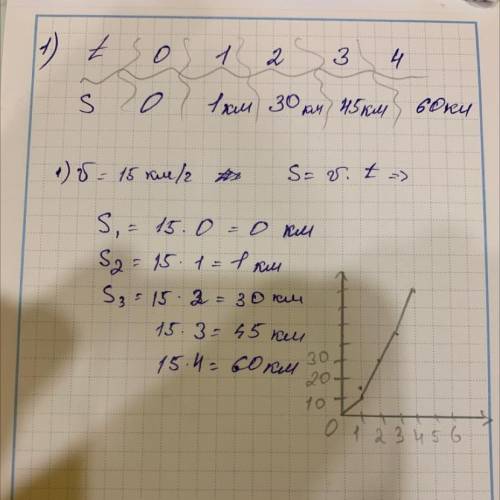 1) t 0 1 2 3 4
S 0 1км 30км 45км 60км
1) v = 15 км/г S = v · t =>
S₁ = 15 · 0 = 0 км
S₂ = 15 · 1 = 1 км
S₃ = 15 · 2 = 30 км
15 · 3 = 45 км
15 · 4 = 60 км
30
20
10
0 1 2 3 4 5 6